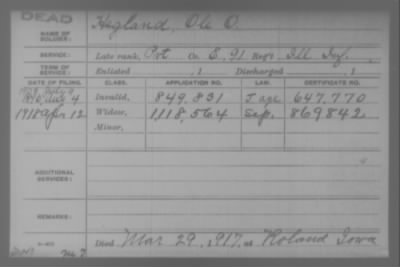 DEAD
NAME OF SOLDIER: Hegland, Ole O.
SERVICE: Late rank, Pvt Co. E, 91 Reg't Ill Inf.
TERM OF SERVICE: Enlisted , 1 Discharged , 1
DATE OF FILING. CLASS. APPLICATION NO. LAW. CERTIFICATE NO.
July 4 Invalid, 849,831 647,770
1918 Apr 12 Widow, 1,118,564 869842
Minor,
ADDITIONAL SERVICES:
REMARKS:
Died Mar 29, 1917, at Roland Iowa